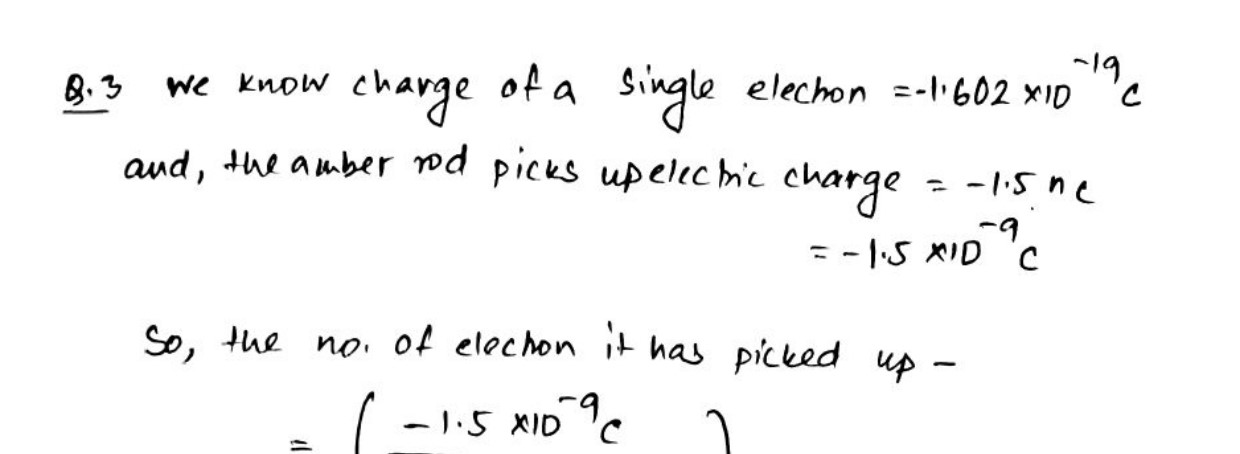 Q.3 we know charge of a single electron = -1.602 × 10⁻¹⁹ c
and, the amber rod picks up electric charge = -1.5 nc
= -1.5 × 10⁻⁹ c
So, the no. of electron it has picked up -
= ( -1.5 × 10⁻⁹ c )